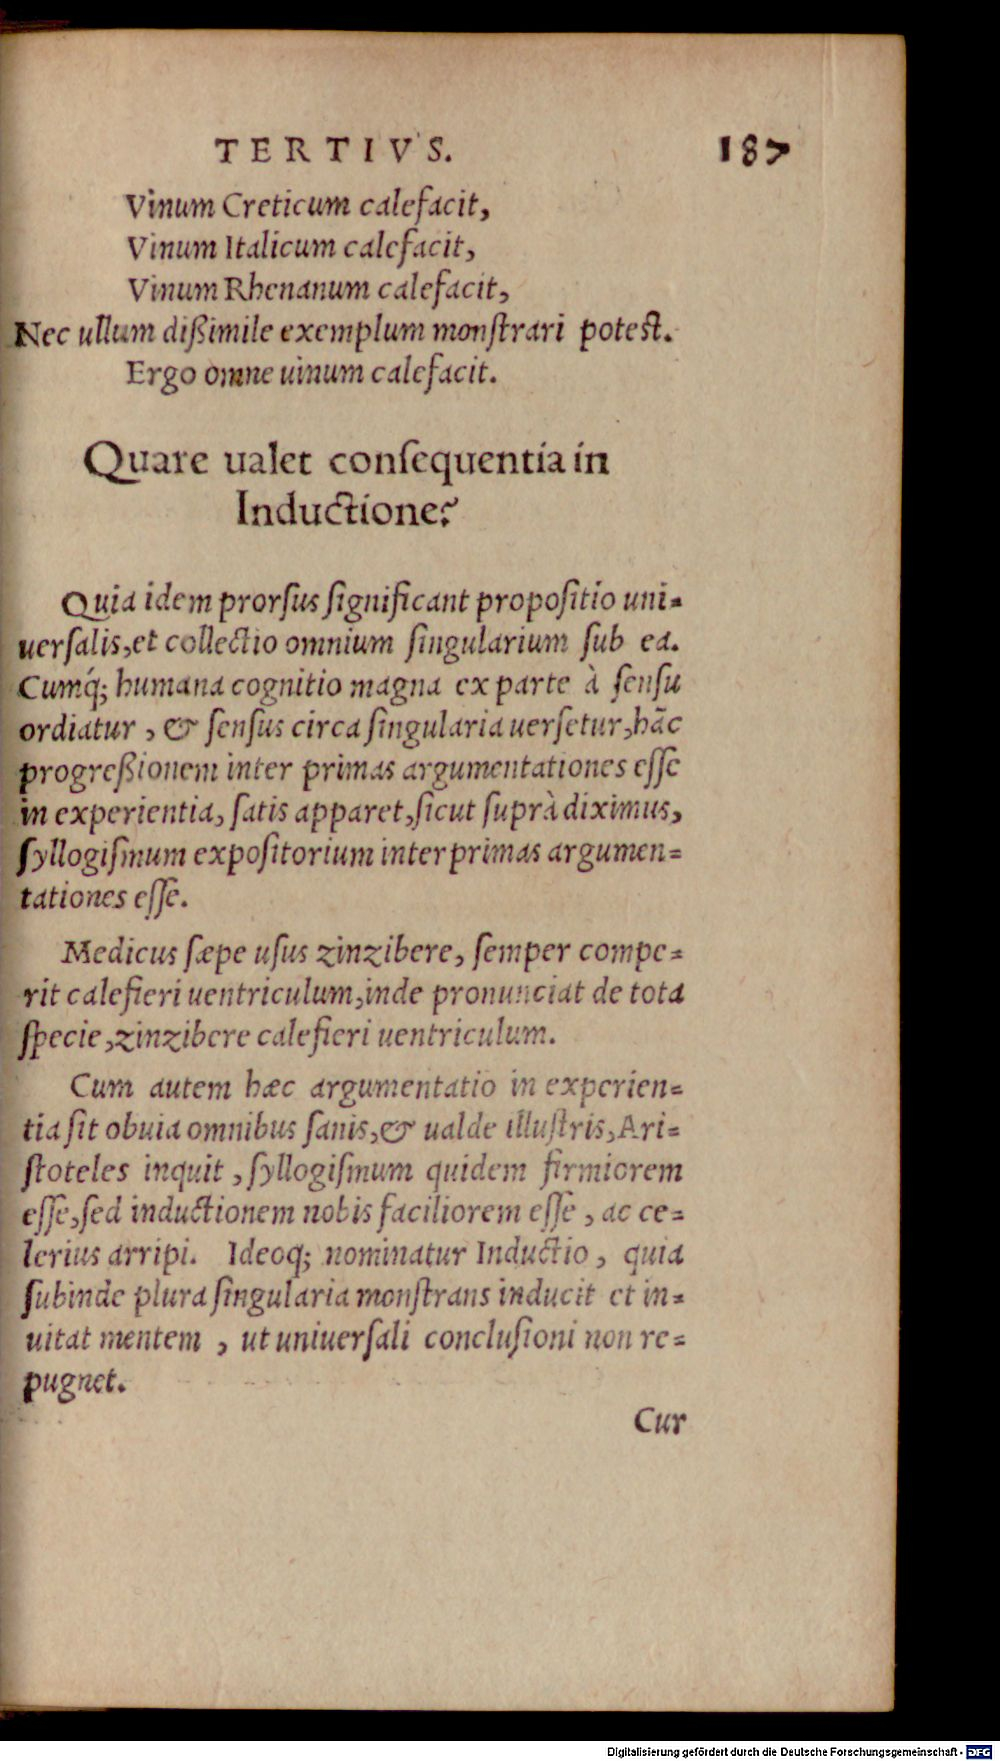 TERTIVS. 187
Vinum Creticum calefacit,
Vinum Italicum calefacit,
Vinum Rhenanum calefacit,
Nec ullum dißimile exemplum monſtrari poteſt.
Ergo omne uinum calefacit.
Quare ualet conſequentia in
Inductione?
Quia idem prorſus ſignificant propoſitio uni=
uerſalis, et collectio omnium ſingularium ſub ea.
Cumq́; humana cognitio magna ex parte à ſenſu
ordiatur, & ſenſus circa ſingularia uerſetur, hãc
progreßionem inter primas argumentationes eſſe
in experientia, ſatis apparet, ſicut ſuprà diximus,
ſyllogiſmum expoſitorium inter primas argumen=
tationes eſſe.
Medicus ſæpe uſus zinzibere, ſemper compe=
rit calefieri uentriculum, inde pronunciat de tota
ſpecie, zinzibere calefieri uentriculum.
Cum autem hæc argumentatio in experien=
tia ſit obuia omnibus ſanis, & ualde illuſtris, Ari=
ſtoteles inquit, ſyllogiſmum quidem firmiorem
eſſe, ſed inductionem nobis faciliorem eſſe, ac ce=
lerius arripi. Ideoq; nominatur Inductio, quia
ſubinde plura ſingularia monſtrans inducit et in=
uitat mentem, ut uniuerſali concluſioni non re=
pugnet.
Cur
Digitalisierung gefördert durch die Deutsche Forschungsgemeinschaft - DFG